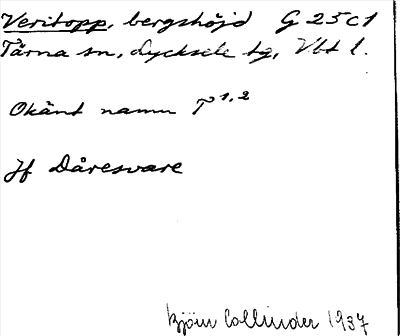 Veritopp, bergshöjd G 25 c 1
Tärna sn, Lycksele tg, Vbt l.
Okänt namn T 1,2
Jf Dåresvare
Björn Collinder 1937